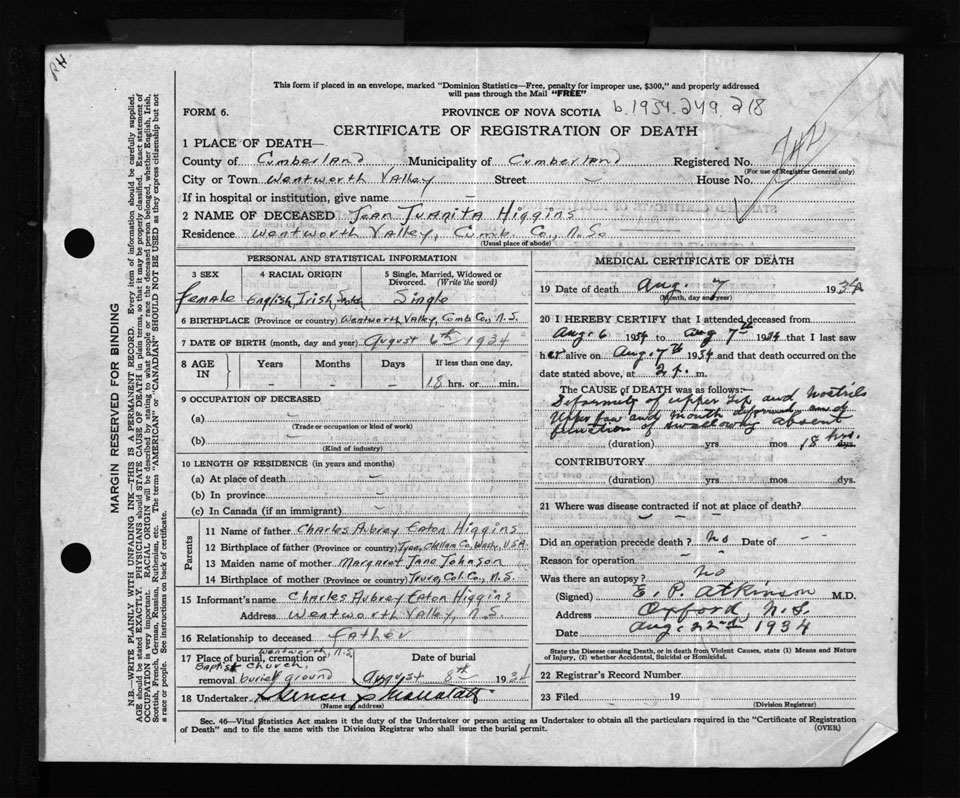 RH
This form if placed in an envelope, marked "Dominion Statistics—Free, penalty for improper use, $300," and properly addressed
will pass through the Mail "FREE"
FORM 6.
PROVINCE OF NOVA SCOTIA
b. 1934. 249. 218
CERTIFICATE OF REGISTRATION OF DEATH
1 PLACE OF DEATH—
County of Cumberland Municipality of Cumberland Registered No.
(For use of Registrar General only)
City or Town Wentworth Valley Street – House No.
If in hospital or institution, give name –
2 NAME OF DECEASED Jean Juanita Higgins
Residence Wentworth Valley, Cumb. Co., N.S.
(Usual place of abode)
PERSONAL AND STATISTICAL INFORMATION
3 SEX 4 RACIAL ORIGIN 5 Single, Married, Widowed or Divorced. (Write the word)
female English Irish Single
6 BIRTHPLACE (Province or country) Wentworth Valley, Comb Co., N.S.
7 DATE OF BIRTH (month, day and year) August 6th 1934
8 AGE IN Years Months Days If less than one day,
– – – 18 hrs. or min.
9 OCCUPATION OF DECEASED
(a)
(Trade or occupation or kind of work)
(b)
(Kind of industry)
10 LENGTH OF RESIDENCE (in years and months)
(a) At place of death –
(b) In province –
(c) In Canada (if an immigrant) –
Parents
11 Name of father Charles Aubrey Eaton Higgins
12 Birthplace of father (Province or country) Tyee, Clallam Co, Wash, U.S.A.
13 Maiden name of mother Margaret Jane Johnson
14 Birthplace of mother (Province or country) Truro, Col. Co., N.S.
15 Informant's name Charles Aubrey Eaton Higgins
Address Wentworth Valley, N.S
16 Relationship to deceased father
17 Place of burial, cremation or removal Wentworth, N.S. Baptist Church, buriel ground
Date of burial August 8th 1934
18 Undertaker
(Name and address)
MEDICAL CERTIFICATE OF DEATH
19 Date of death Aug. 7 1934
(Month, day and year)
20 I HEREBY CERTIFY that I attended deceased from
Aug. 6 1934 to Aug 7th 1934 that I last saw
her alive on Aug. 7th 1934 and that death occurred on the
date stated above, at 2 p. m.
The CAUSE OF DEATH was as follows:—
Deformity of upper Lip and Nostrils
and mouth deformed and
function of swallowing absent
(duration) yrs mos 18 hrs. dys.
CONTRIBUTORY
(duration) yrs. mos. dys.
21 Where was disease contracted if not at place of death?
Did an operation precede death? No Date of – –
Reason for operation – –
Was there an autopsy? No
(Signed) E. P. Atkinson M.D.
Address Oxford, N.S.
Date Aug. 22nd 1934
State the Disease causing Death, or in death from Violent Causes, state (1) Means and Nature
of Injury, (2) whether Accidental, Suicidal or Homicidal.
22 Registrar's Record Number
23 Filed 19
(Division Registrar)
Sec. 46—Vital Statistics Act makes it the duty of the Undertaker or person acting as Undertaker to obtain all the particulars required in the "Certificate of Registration
of Death" and to file the same with the Division Registrar who shall issue the burial permit.
(OVER)
MARGIN RESERVED FOR BINDING
N.B.—WRITE PLAINLY WITH UNFADING INK—THIS IS A PERMANENT RECORD. Every item of information should be carefully supplied.
AGE should be stated EXACTLY. PHYSICIANS should STATE CAUSE OF DEATH in plain terms, so that it may be properly classified. Exact statement of
OCCUPATION is very important. RACIAL ORIGIN will be described by stating to what people or race the deceased person belonged, whether English, Irish,
Scottish, French, German, Russian, Ruthenian, etc. The terms "AMERICAN" or "CANADIAN" SHOULD NOT BE USED as they express citizenship but not
a race or people. See instructions on back of certificate.